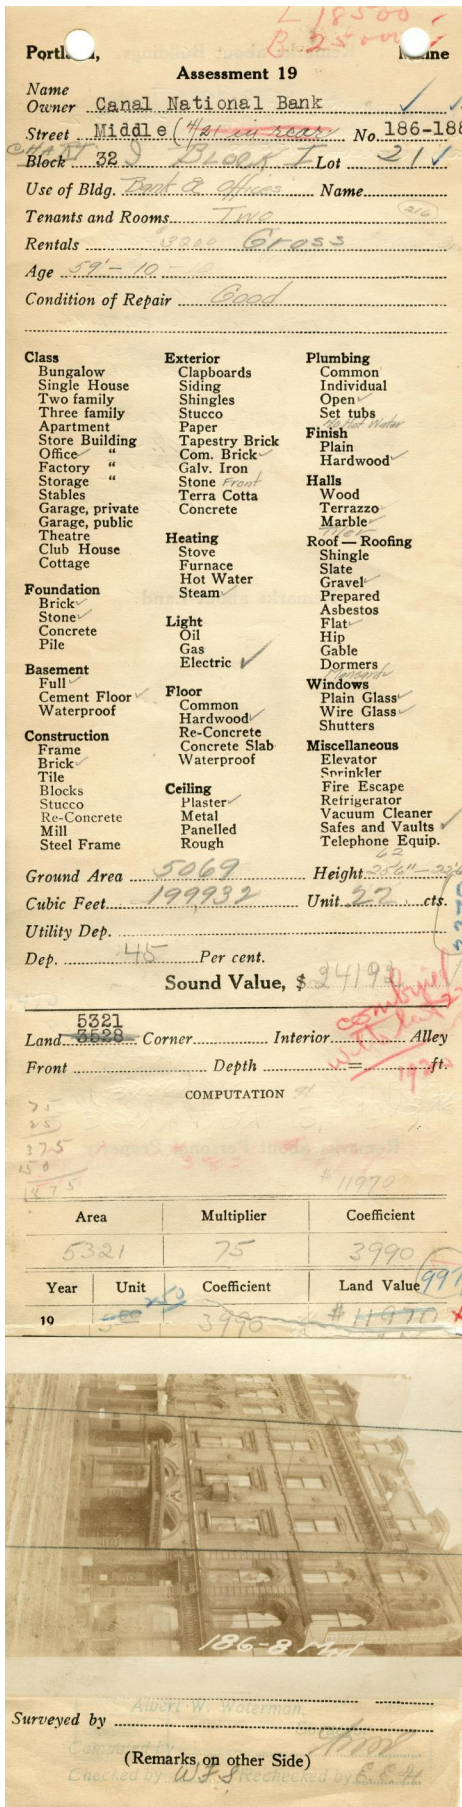 L 18500
B 25000
Portland, Maine
Assessment 19
Name
Owner Canal National Bank
Street Middle (4/21 in rear No. 186-188
CHART
Block 32 S BLOCK I Lot 21
Use of Bldg. Bank & offices Name
216
Tenants and Rooms Two
Rentals $3200 Gross
Age 59'-10
Condition of Repair Good
Class
Bungalow
Single House
Two family
Three family
Apartment
Store Building
Office "
Factory "
Storage "
Stables
Garage, private
Garage, public
Theatre
Club House
Cottage
Foundation
Brick
Stone
Concrete
Pile
Basement
Full
Cement Floor
Waterproof
Construction
Frame
Brick
Tile
Blocks
Stucco
Re-Concrete
Mill
Steel Frame
Exterior
Clapboards
Siding
Shingles
Stucco
Paper
Tapestry Brick
Com. Brick
Galv. Iron
Stone Front
Terra Cotta
Concrete
Heating
Stove
Furnace
Hot Water
Steam
Light
Oil
Gas
Electric
Floor
Common
Hardwood
Re-Concrete
Concrete Slab
Waterproof
Ceiling
Plaster
Metal
Panelled
Rough
Plumbing
Common
Individual
Open
Set tubs
No Hot Water
Finish
Plain
Hardwood
Halls
Wood
Terrazzo
Marble
Tiles
Roof — Roofing
Shingle
Slate
Gravel
Prepared
Asbestos
Flat
Hip
Gable
Dormers
Mansard
Windows
Plain Glass
Wire Glass
Shutters
Miscellaneous
Elevator
Sprinkler
Fire Escape
Refrigerator
Vacuum Cleaner
Safes and Vaults
Telephone Equip.
62
Ground Area 5069 Height 25'6"
Cubic Feet 199932 Unit 27 cts.
Utility Dep.
Dep. 45 Per cent.
Sound Value, $ 24193
combined
with lot
1920
5321
Land 3528 Corner Interior Alley
Front Depth = ft.
COMPUTATION
75
25
375
150
1875
$11970
Area Multiplier Coefficient
5321 75 3990
Year Unit Coefficient Land Value 997
250
19 3.00 3990 $11970
186-8 Mid
Albert W. Waterman,
Surveyed by
Computed by
(Remarks on other Side)
Checked by WFS Rechecked by E.E.H.